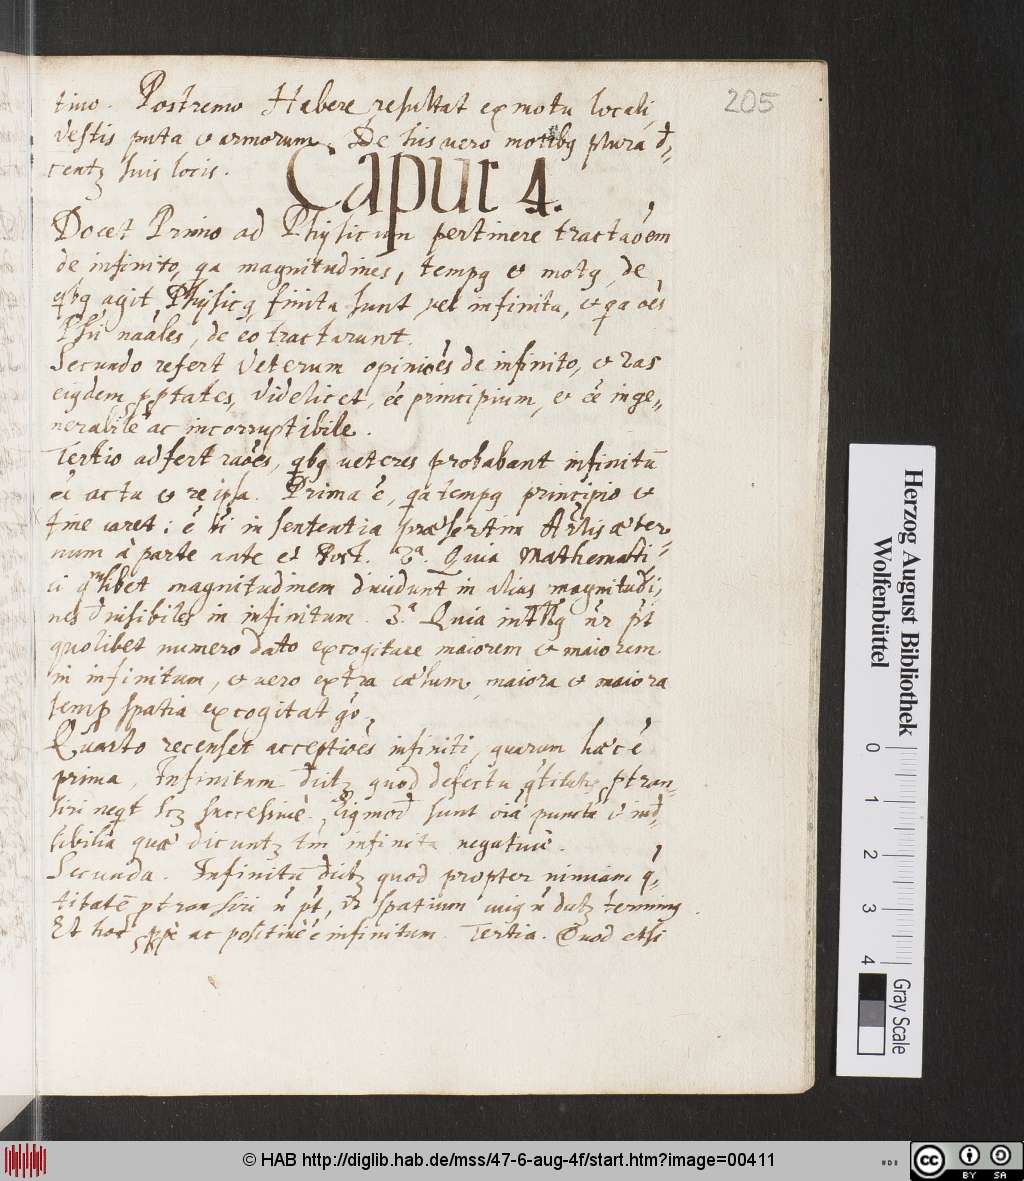 205
tivo. Postremo Habere resultat ex motu locali,
vestis puta et armorum. De his vero motibq plura
suis locis.
Caput 4.
Docet Primo ad Physicum pertinere tractaõem
de infinito, qa magnitudines, tempq et motq, de
qbq agit Physicq finita sunt vel infinita, et qa oẽs
naales, de eo tractarunt.
Secundo refert Veterum opiniões de infinito, et
eiqdem pptates, videlicet, eẽ principium, et eẽ inge-
nerabile ac incorruptibile.
Tertio adfert raões, qbq veteres probabant infinitũ
actu et re ipsa. Prima ẽ, qa tempq principio et
fine caret: in sententia præsertim Arlis æter-
num à parte ante et Post. 2ª. Quia Mathemati-
ci magnitudinem dividunt in alias magnitudi-
nes divisibiles in infinitum. 3ª Quia
quolibet numero dato excogitare maiorem et maiorem
in infinitum, et vero extra cælum maiora et maiora
semp spatia excogitat
Quarto recenset acceptiões infiniti, quarum hæc ẽ
prima, Infinitum quod defectu ptran-
siri neqt successivè. sunt oia puncta et
sibilia quæ infinita negativè.
Secunda. Infinitũ quod propter nimiam q-
titatẽ ptransiri ñ pt, spatium
Et hoc ac positivè ẽ infinitum. Tertia. Quod etsi
Herzog August Bibliothek
Wolfenbüttel
0 1 2 3 4
Gray Scale
© HAB http://diglib.hab.de/mss/47-6-aug-4f/start.htm?image=00411
cc BY SA